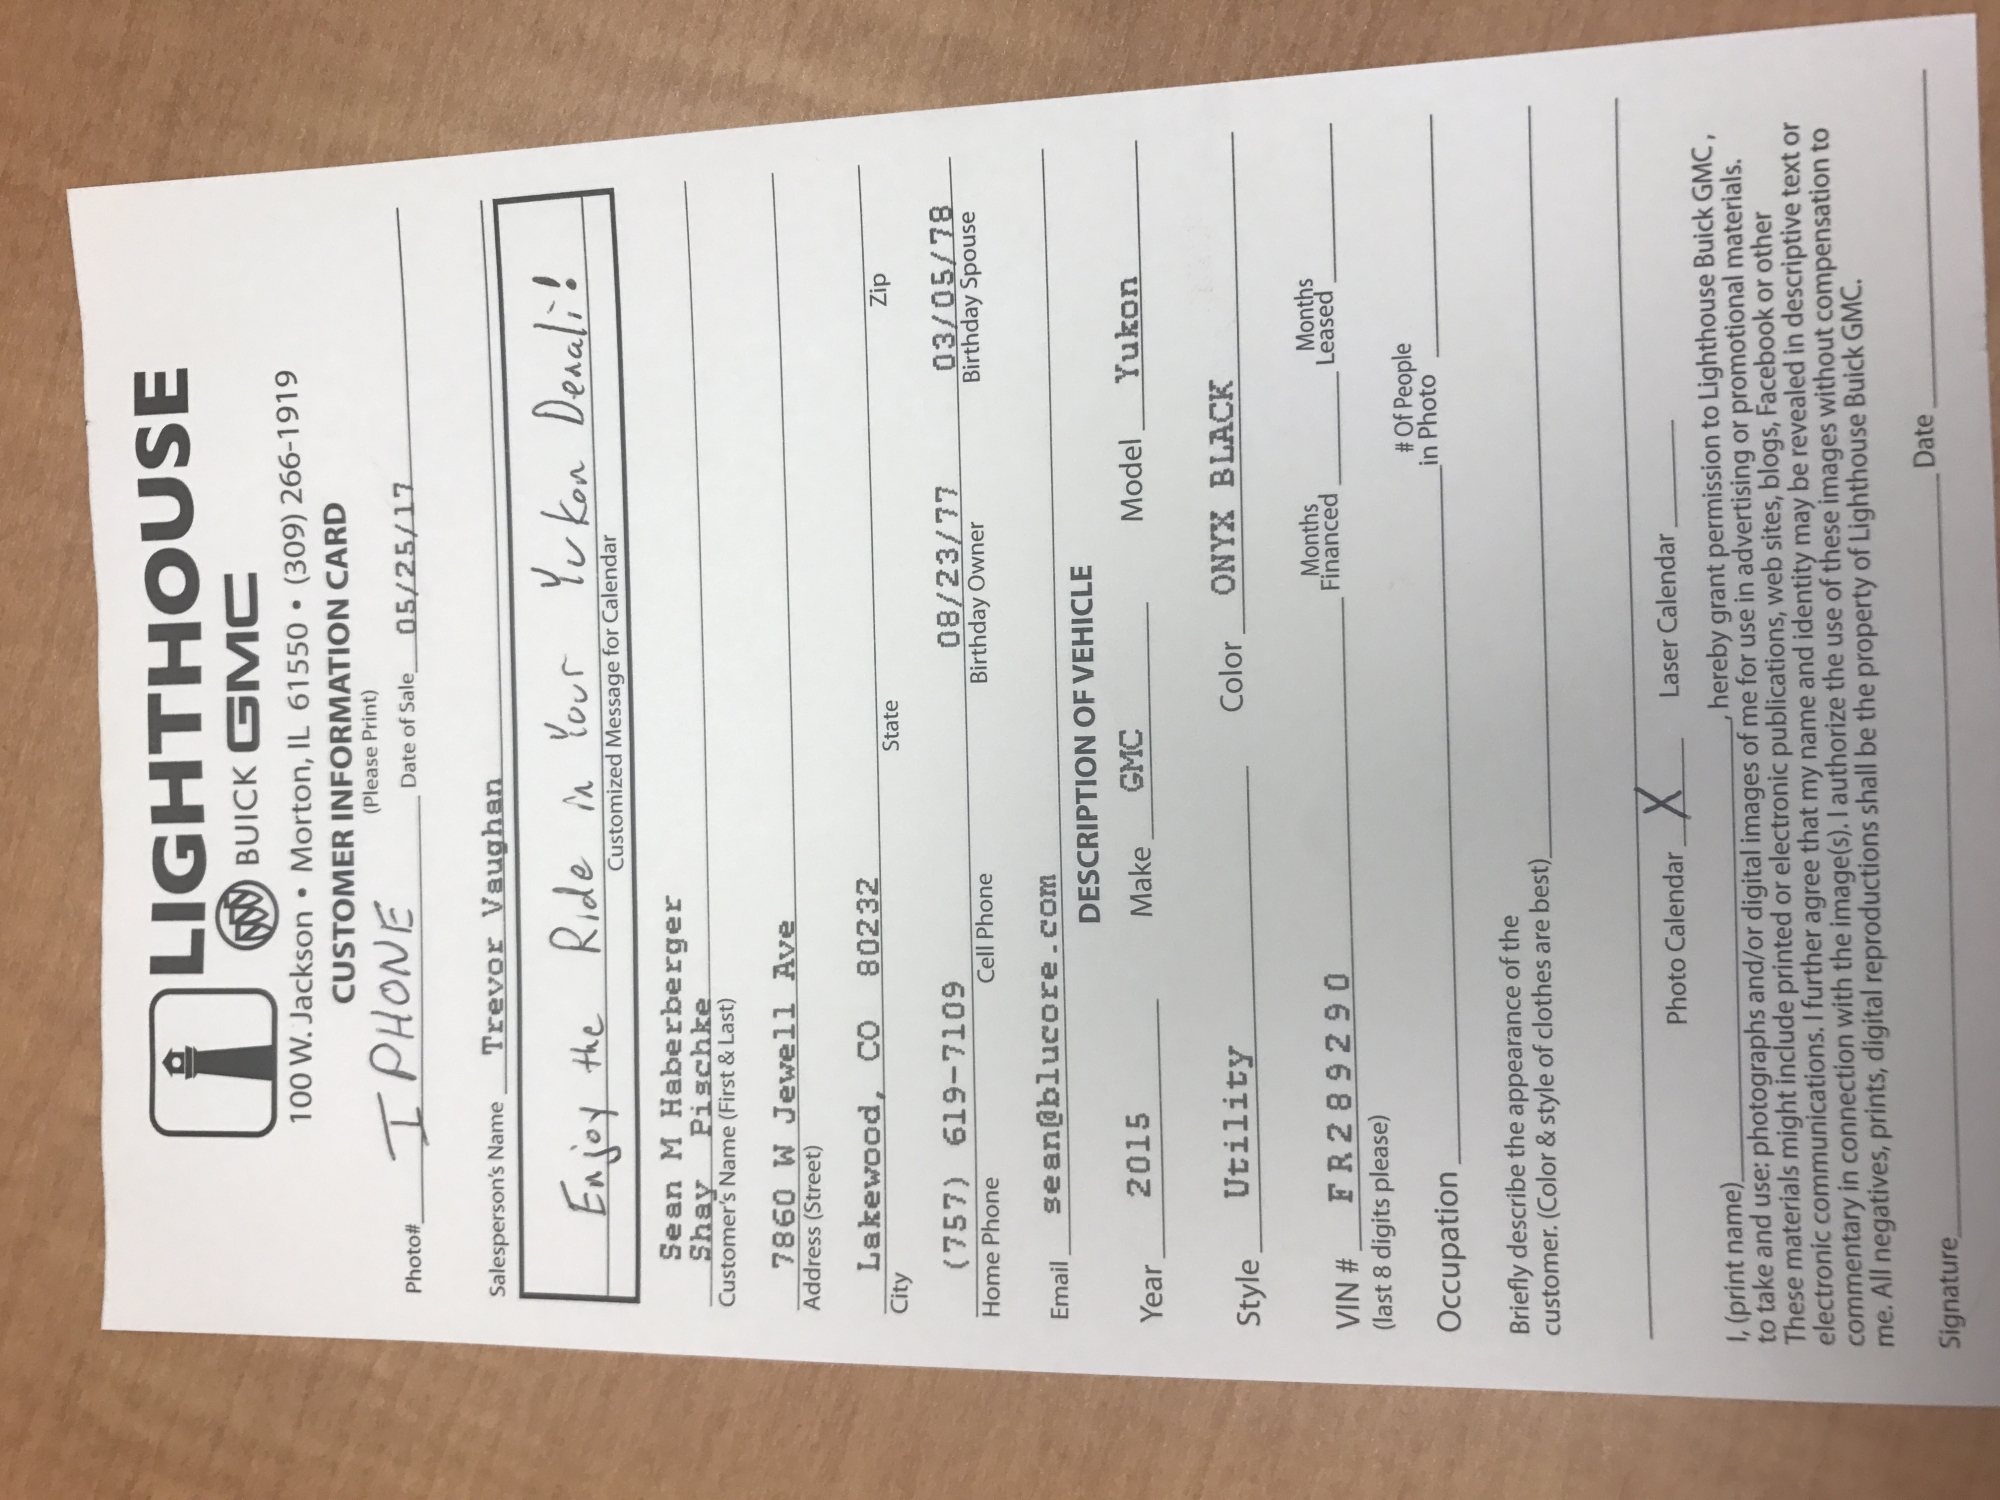 LIGHTHOUSE
BUICK GMC
100 W. Jackson • Morton, IL 61550 • (309) 266-1919
CUSTOMER INFORMATION CARD
(Please Print)
Photo# I PHONE Date of Sale 05/25/17
Salesperson's Name Trevor Vaughan
Enjoy the Ride in Your Yukon Denali!
Customized Message for Calendar
Sean M Haberberger
Shay Pischke
Customer's Name (First & Last)
7860 W Jewell Ave
Address (Street)
Lakewood, CO 80232
City State Zip
(757) 619-7109 08/23/77 03/05/78
Home Phone Cell Phone Birthday Owner Birthday Spouse
Email sean@blucore.com
DESCRIPTION OF VEHICLE
Year 2015 Make GMC Model Yukon
Style Utility Color ONYX BLACK
VIN # FR289290 Months Financed Months Leased
(last 8 digits please)
Occupation # Of People in Photo
Briefly describe the appearance of the
customer. (Color & style of clothes are best)
Photo Calendar X Laser Calendar
I, (print name) , hereby grant permission to Lighthouse Buick GMC,
to take and use: photographs and/or digital images of me for use in advertising or promotional materials.
These materials might include printed or electronic publications, web sites, blogs, Facebook or other
electronic communications. I further agree that my name and identity may be revealed in descriptive text or
commentary in connection with the image(s). I authorize the use of these images without compensation to
me. All negatives, prints, digital reproductions shall be the property of Lighthouse Buick GMC.
Signature Date